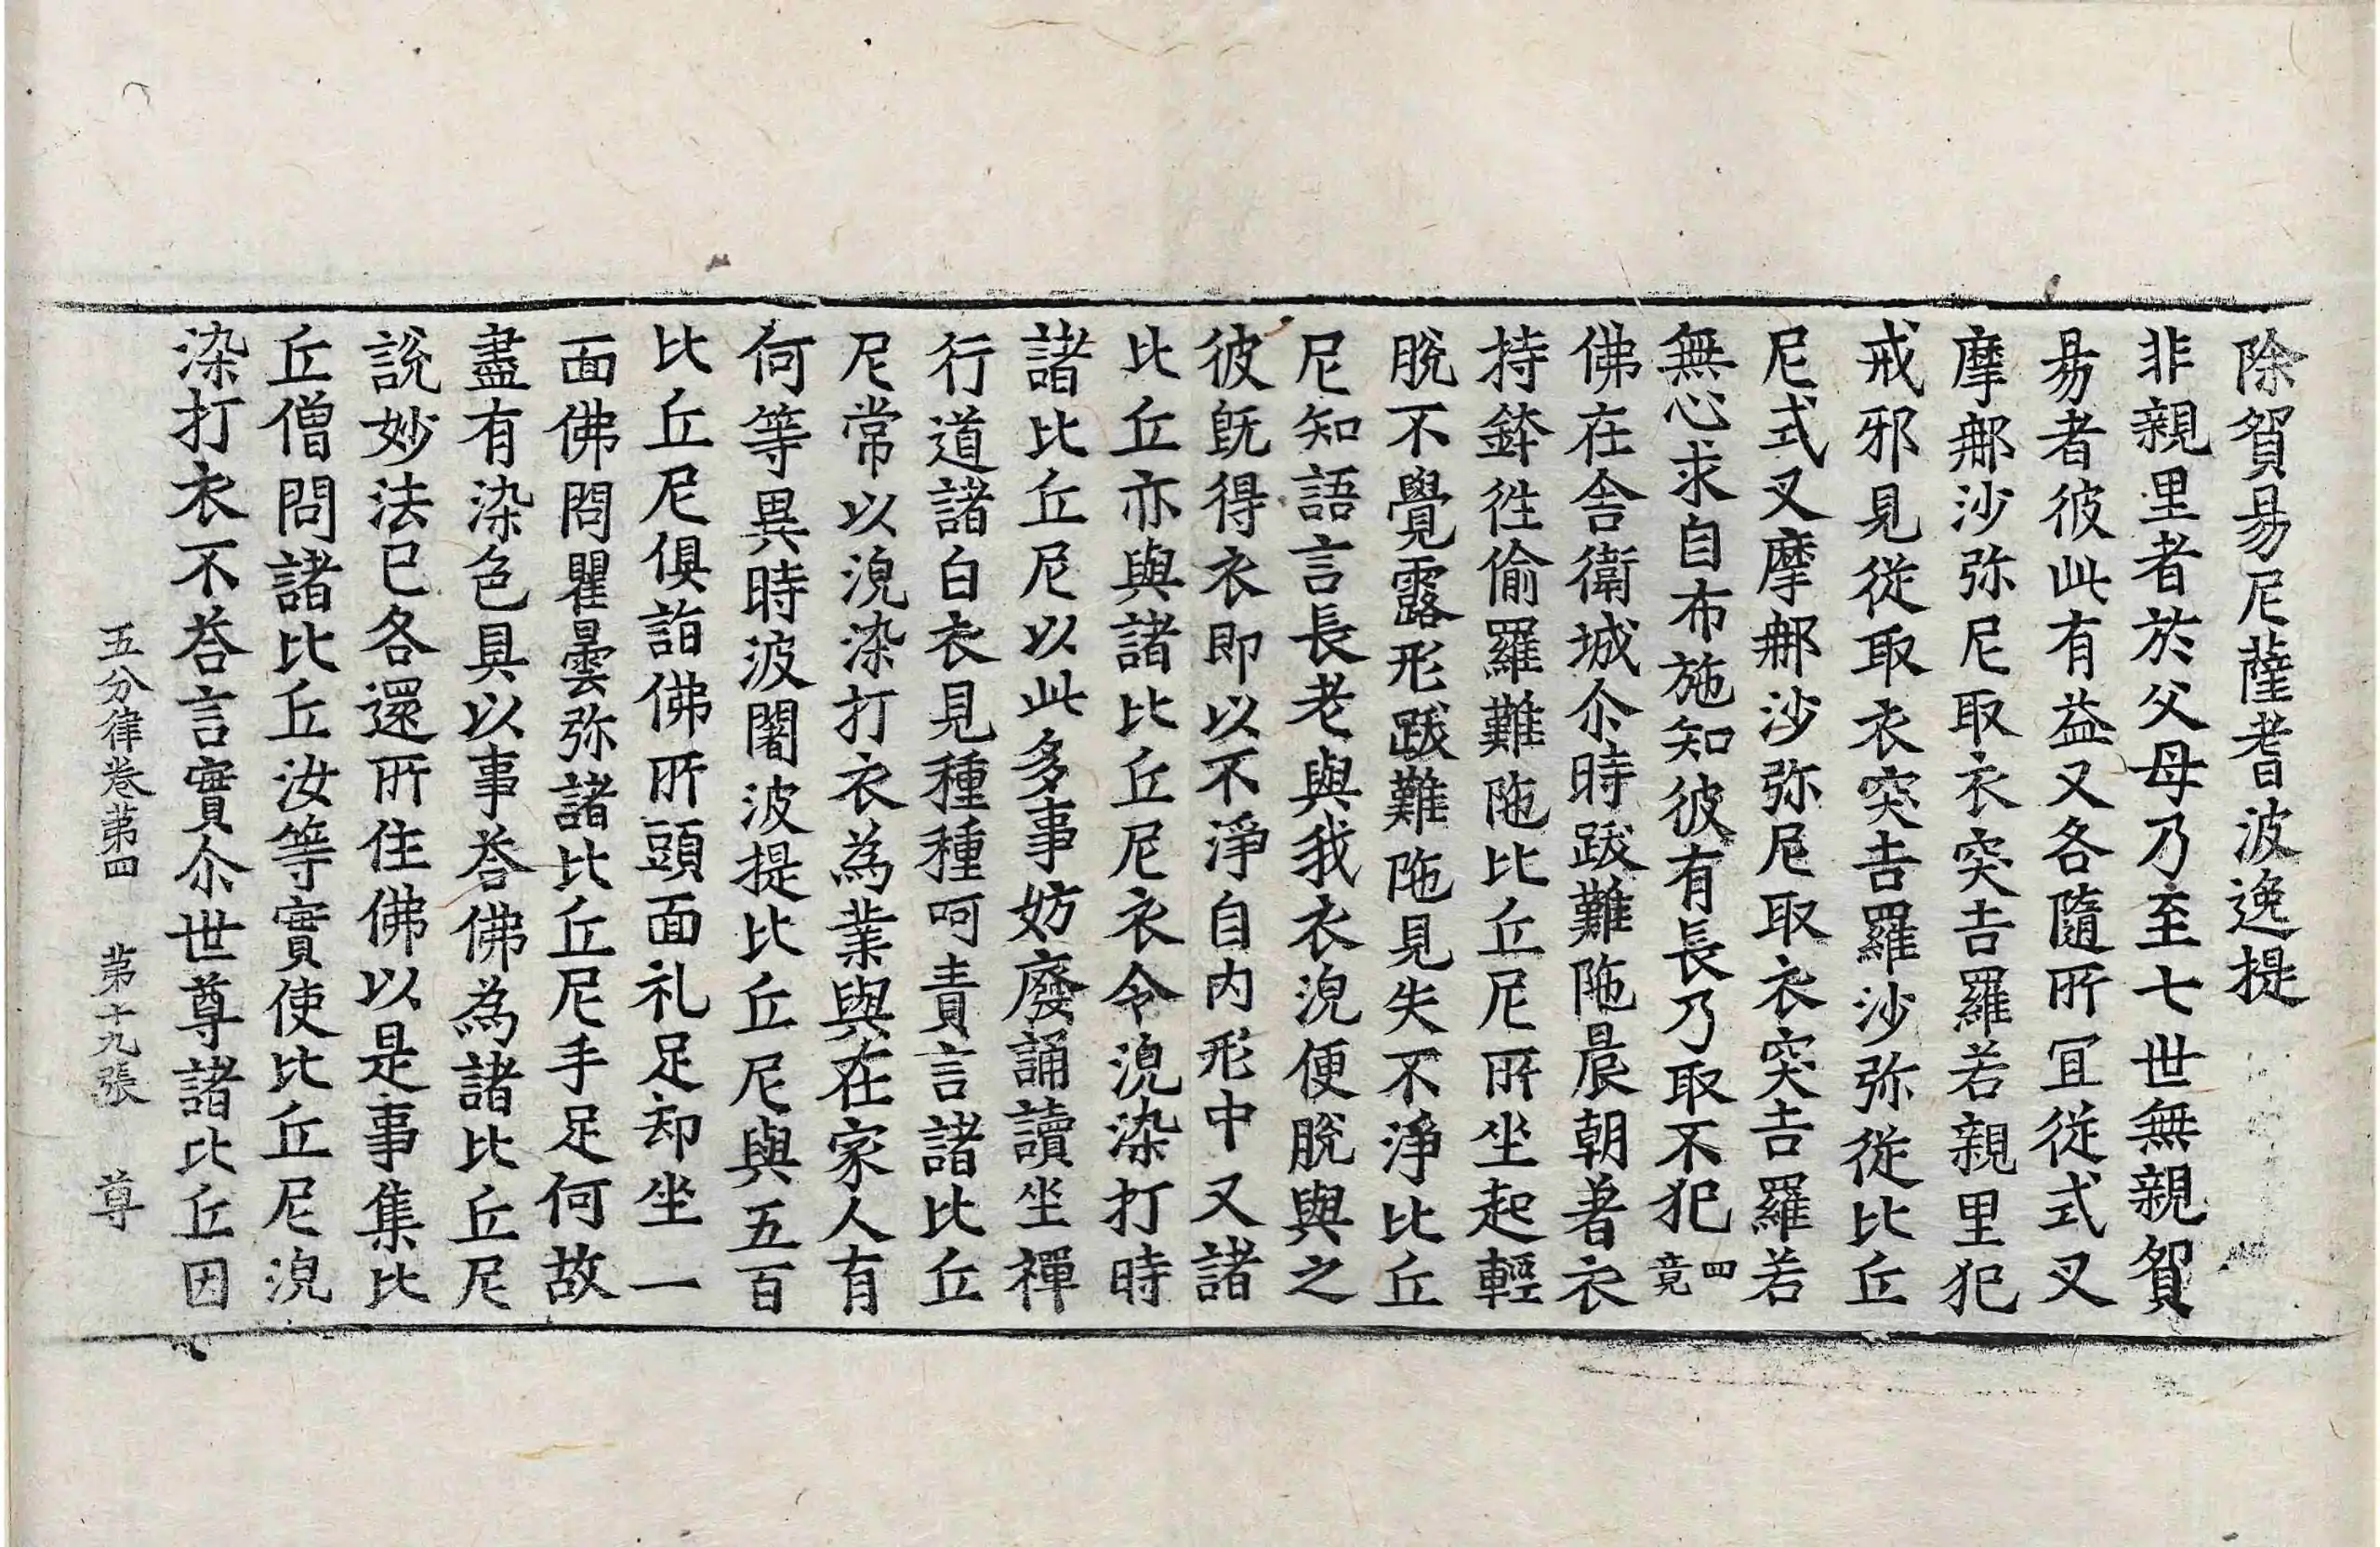 除貿易尼薩耆波逸提
非親里者於父母乃至七世無親貿
易者彼此有益又各隨所冝從式叉
摩𨚗沙弥尼取衣突吉羅若親里犯
戒邪見從取衣突吉羅沙弥從比丘
尼式叉摩𨚗沙弥尼取衣突吉羅若
無心求自布施知彼有長乃取不犯四竟
佛在舎衛城尒時跋難陁晨朝著衣
持鉢徃偷羅難陁比丘尼所坐起輕
脫不覺露形跋難陁見失不淨比丘
尼知語言長老與我衣浣便脫與之
彼旣得衣即以不淨自内形中又諸
比丘亦與諸比丘尼衣令浣染打時
諸比丘尼以此多事妨廢誦讀坐禪
行道諸白衣見種種呵責言諸比丘
尼常以浣染打衣為業與在家人有
何等異時波闍波提比丘尼與五百
比丘尼俱詣佛所頭面礼足却坐一
面佛問瞿曇弥諸比丘尼手足何故
盡有染色具以事荅佛為諸比丘尼
說妙法已各還所住佛以是事集比
丘僧問諸比丘汝等實使比丘尼浣
染打衣不荅言實尒世尊諸比丘因
五分律卷苐四 苐十九張 尊